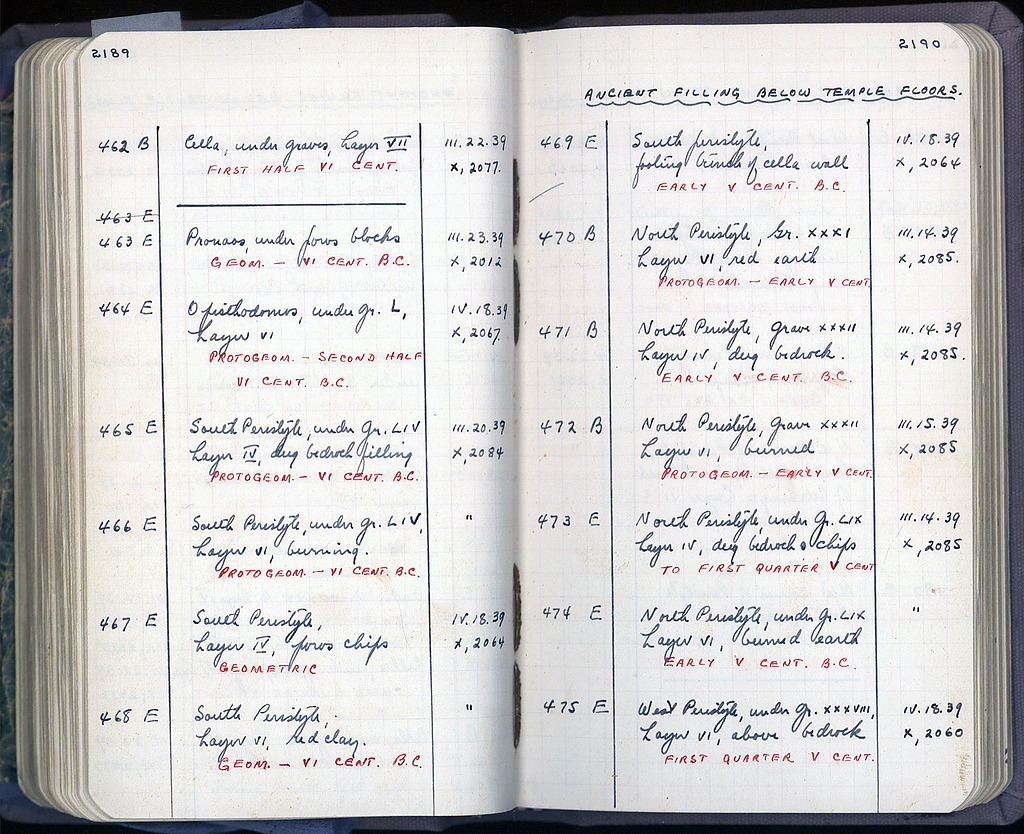 2189
462 B Cella, under graves, Layer VII III.22.39
FIRST HALF VI CENT. X, 2077.
463 E
463 E Pronaos, under poros blocks III.23.39
GEOM. – VI CENT. B.C. X, 2012
464 E Opisthodomos, under gr. L, IV.18.39
Layer VI X, 2067
PROTOGEOM. – SECOND HALF
VI CENT. B.C.
465 E South Peristyle, under Gr. LIV III.20.39
Layer IV, dug bedrock filling X, 2084
PROTOGEOM. – VI CENT. B.C.
466 E South Peristyle, under gr. LIV, "
Layer VI, burning.
PROTOGEOM. – VI CENT. B.C.
467 E South Peristyle, IV.18.39
Layer IV, poros chips X, 2064
GEOMETRIC
468 E South Peristyle, "
Layer VI, red clay.
GEOM. – VI CENT. B.C.
2190
ANCIENT FILLING BELOW TEMPLE FLOORS.
469 E South peristyle, IV.18.39
footing trench of cella wall X, 2064
EARLY V CENT. B.C.
470 B North Peristyle, Gr. XXXI III.14.39
Layer VI, red earth X, 2085.
PROTOGEOM. – EARLY V CENT.
471 B North Peristyle, grave XXXII III.14.39
Layer IV, dug bedrock. X, 2085.
EARLY V CENT. B.C.
472 B North Peristyle, grave XXXII III.15.39
Layer VI, burned X, 2085
PROTOGEOM. – EARLY V CENT.
473 E North Peristyle, under Gr. LIX III.14.39
Layer IV, dug bedrock & chips X, 2085
TO FIRST QUARTER V CENT
474 E North Peristyle, under Gr. LIX "
Layer VI, burned earth
EARLY V CENT. B.C.
475 E West Peristyle, under Gr. XXXVIII, IV.18.39
Layer VI, above bedrock X, 2060
FIRST QUARTER V CENT.